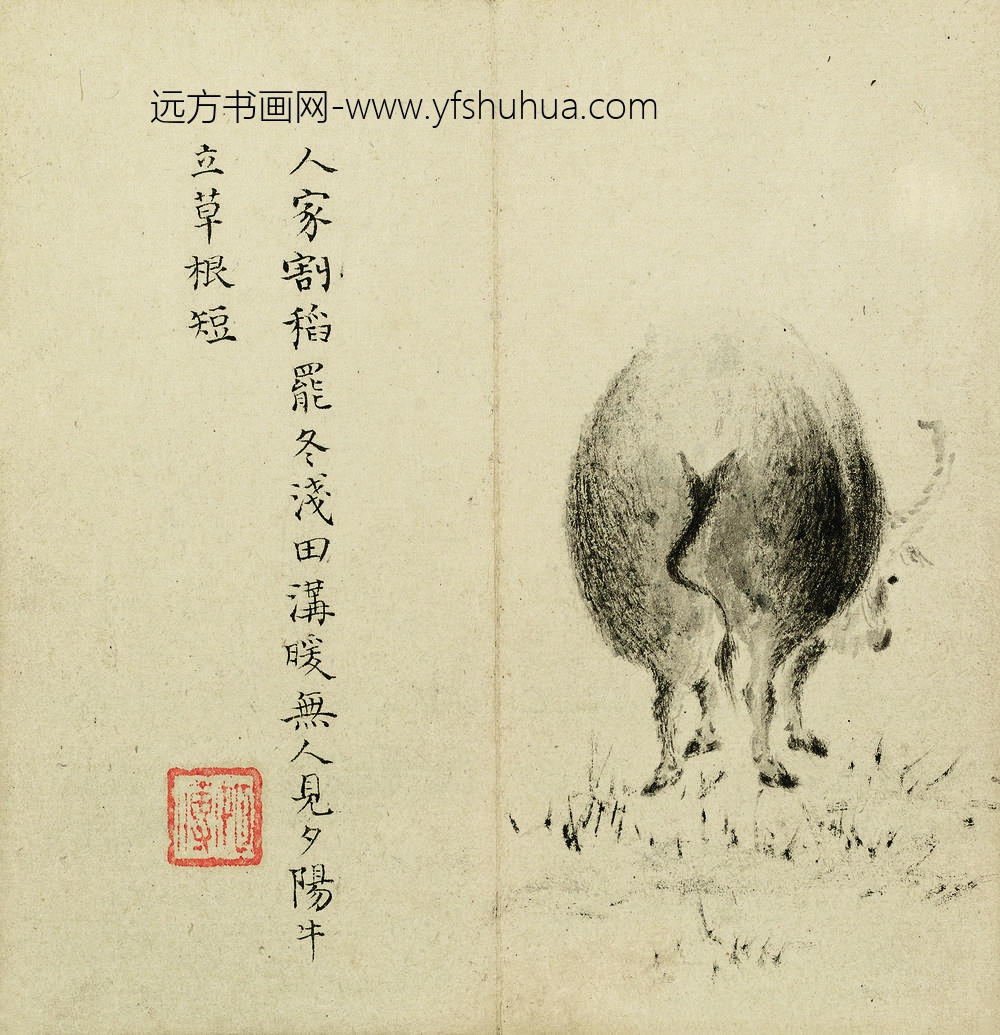 远方书画网-www.yfshuhua.com
人家割稻罷冬淺田溝暖無人見夕陽牛
立草根短